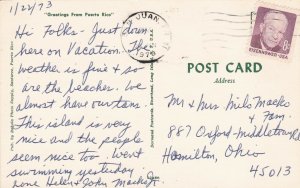 "Greetings From Puerto Rico"
1/22/73
Hi Folks - Just down
here on Vacation. The
weather is fine & so
are the beaches. We
almost have our tans.
This island is very
nice and the people
seem nice too. Went
swimming yesterday.
Love Helen & John
JUAN
EISENHOWER·USA
8c
POST CARD
Address
Mr & Mrs Milo Macko
& Fam.
887 Oxford-Middletown Rd
Hamilton, Ohio
45013